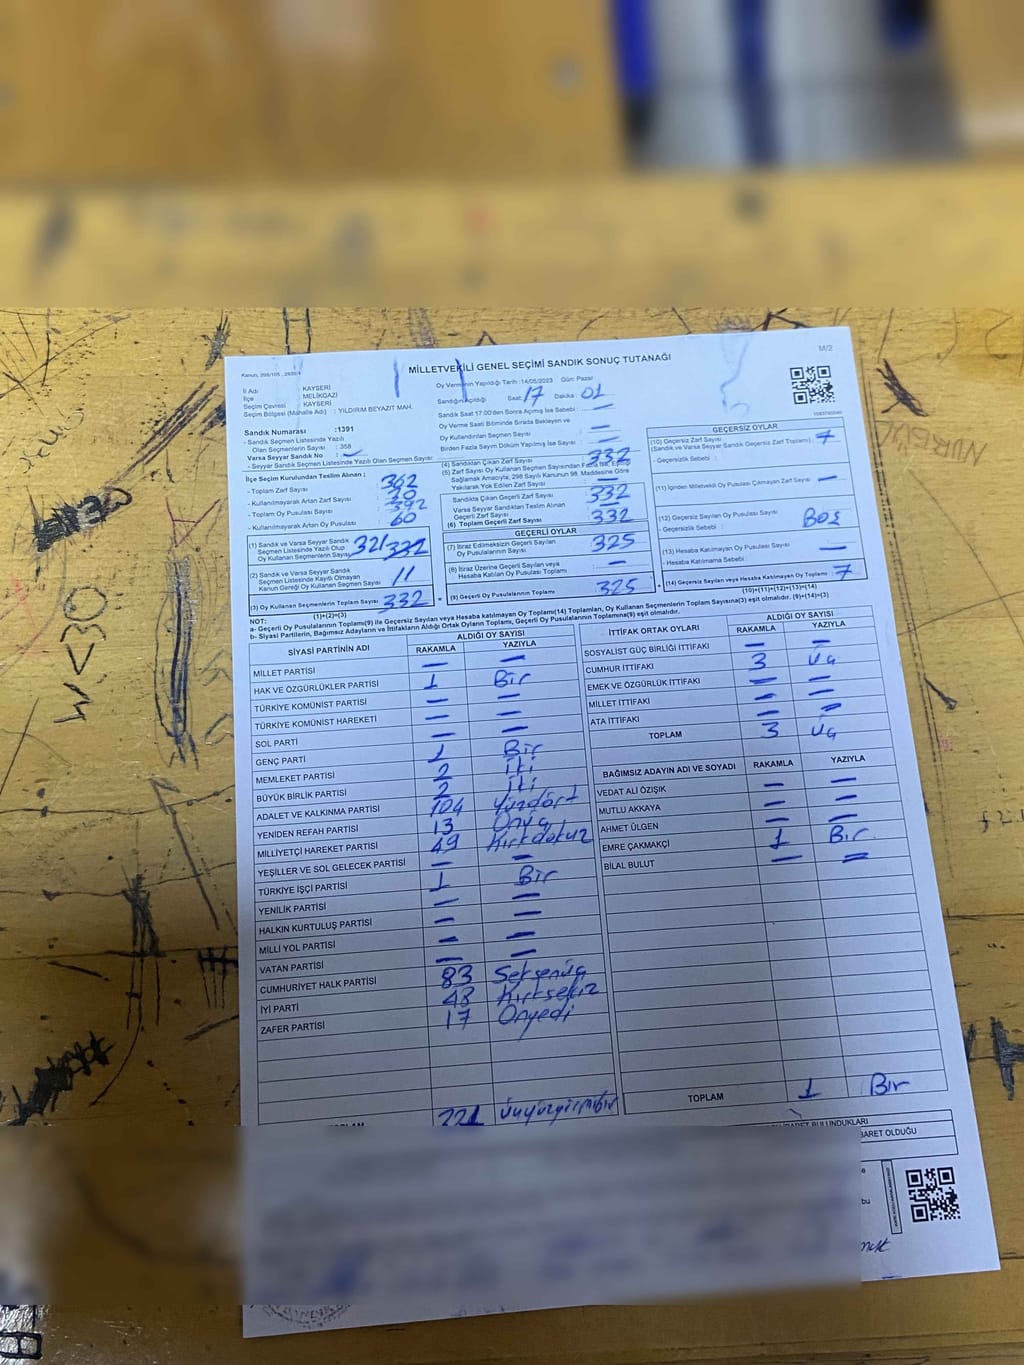 Kanun, 298/105 , 2839/4
M/2
MİLLETVEKİLİ GENEL SEÇİMİ SANDIK SONUÇ TUTANAĞI
İl Adı : KAYSERİ
İlçe : MELİKGAZİ
Seçim Çevresi : KAYSERİ
Seçim Bölgesi (Mahalle Adı) : YILDIRIM BEYAZIT MAH.
Oy Vermenin Yapıldığı Tarih :14/05/2023 Gün: Pazar
Sandığın Açıldığı Saat : 17 Dakika : 01
Sandık Saat 17.00'den Sonra Açılmış İse Sebebi : —
Oy Verme Saati Bitiminde Sırada Bekleyen ve
Oy Kullandırılan Seçmen Sayısı : —
Birden Fazla Sayım Döküm Yapılmış İse Sayısı : —
Sandık Numarası :1391
- Sandık Seçmen Listesinde Yazılı
Olan Seçmenlerin Sayısı : 358
Varsa Seyyar Sandık No : —
- Seyyar Sandık Seçmen Listesinde Yazılı Olan Seçmen Sayısı:
İlçe Seçim Kurulundan Teslim Alınan :
- Toplam Zarf Sayısı : 362
- Kullanılmayarak Artan Zarf Sayısı : 30
- Toplam Oy Pusulası Sayısı : 392
- Kullanılmayarak Artan Oy Pusulası : 60
(1) Sandık ve Varsa Seyyar Sandık
Seçmen Listesinde Yazılı Olup
Oy Kullanan Seçmenlerin Sayısı 321/332
(2) Sandık ve Varsa Seyyar Sandık
Seçmen Listesinde Kayıtlı Olmayan
Kanun Gereği Oy Kullanan Seçmen Sayısı 11
(3) Oy Kullanan Seçmenlerin Toplam Sayısı 332
(1)+(2)=(3)
(4) Sandıktan Çıkan Zarf Sayısı : 332
(5) Zarf Sayısı Oy Kullanan Seçmen Sayısından Fazla İse, Eşitliği
Sağlamak Amacıyla; 298 Sayılı Kanunun 98. Maddesine Göre
Yakılarak Yok Edilen Zarf Sayısı : —
Sandıkta Çıkan Geçerli Zarf Sayısı : 332
Varsa Seyyar Sandıktan Teslim Alınan
Geçerli Zarf Sayısı : —
(6) Toplam Geçerli Zarf Sayısı : 332
GEÇERLİ OYLAR
(7) İtiraz Edilmeksizin Geçerli Sayılan
Oy Pusulalarının Sayısı : 325
(8) İtiraz Üzerine Geçerli Sayılan veya
Hesaba Katılan Oy Pusulası Toplamı : —
(9) Geçerli Oy Pusulalarının Toplamı : 325
GEÇERSİZ OYLAR
(10) Geçersiz Zarf Sayısı
(Sandık ve Varsa Seyyar Sandık Geçersiz Zarf Toplamı) : 7
- Geçersizlik Sebebi :
(11) İçinden Milletvekili Oy Pusulası Çıkmayan Zarf Sayısı : —
(12) Geçersiz Sayılan Oy Pusulası Sayısı
- Geçersizlik Sebebi : Boş
(13) Hesaba Katılmayan Oy Pusulası Sayısı : —
- Hesaba Katılmama Sebebi :
(14) Geçersiz Sayılan veya Hesaba Katılmayan Oy Toplamı : 7
(10)+(11)+(12)+(13)=(14)
NOT:
a- Geçerli Oy Pusulalarının Toplamı(9) ile Geçersiz Sayılan veya Hesaba katılmayan Oy Toplamı(14) Toplamları, Oy Kullanan Seçmenlerin Toplam Sayısına(3) eşit olmalıdır. (9)+(14)=(3)
b- Siyasi Partilerin, Bağımsız Adayların ve İttifakların Aldığı Ortak Oyların Toplamı, Geçerli Oy Pusulalarının Toplamına(9) eşit olmalıdır.
SİYASİ PARTİNİN ADI ALDIĞI OY SAYISI
RAKAMLA YAZIYLA
MİLLET PARTİSİ — —
HAK VE ÖZGÜRLÜKLER PARTİSİ 1 Bir
TÜRKİYE KOMÜNİST PARTİSİ — —
TÜRKİYE KOMÜNİST HAREKETİ — —
SOL PARTİ — —
GENÇ PARTİ 1 Bir
MEMLEKET PARTİSİ 2 İki
BÜYÜK BİRLİK PARTİSİ 2 İki
ADALET VE KALKINMA PARTİSİ 104 Yüzdört
YENİDEN REFAH PARTİSİ 13 Onüç
MİLLİYETÇİ HAREKET PARTİSİ 49 Kırkdokuz
YEŞİLLER VE SOL GELECEK PARTİSİ — —
TÜRKİYE İŞÇİ PARTİSİ 1 Bir
YENİLİK PARTİSİ — —
HALKIN KURTULUŞ PARTİSİ — —
MİLLİ YOL PARTİSİ — —
VATAN PARTİSİ — —
CUMHURİYET HALK PARTİSİ 83 Seksenüç
İYİ PARTİ 48 Kırksekiz
ZAFER PARTİSİ 17 Onyedi
Üçyüzyirmibir
İTTİFAK ORTAK OYLARI ALDIĞI OY SAYISI
RAKAMLA YAZIYLA
SOSYALİST GÜÇ BİRLİĞİ İTTİFAKI — —
CUMHUR İTTİFAKI 3 Üç
EMEK VE ÖZGÜRLÜK İTTİFAKI — —
MİLLET İTTİFAKI — —
ATA İTTİFAKI — —
TOPLAM 3 Üç
BAĞIMSIZ ADAYIN ADI VE SOYADI RAKAMLA YAZIYLA
VEDAT ALİ ÖZIŞIK — —
MUTLU AKKAYA — —
AHMET ÜLGEN — —
EMRE ÇAKMAKÇİ 1 Bir
BİLAL BULUT — —
TOPLAM 1 Bir
BARET OLDUĞU
W<30